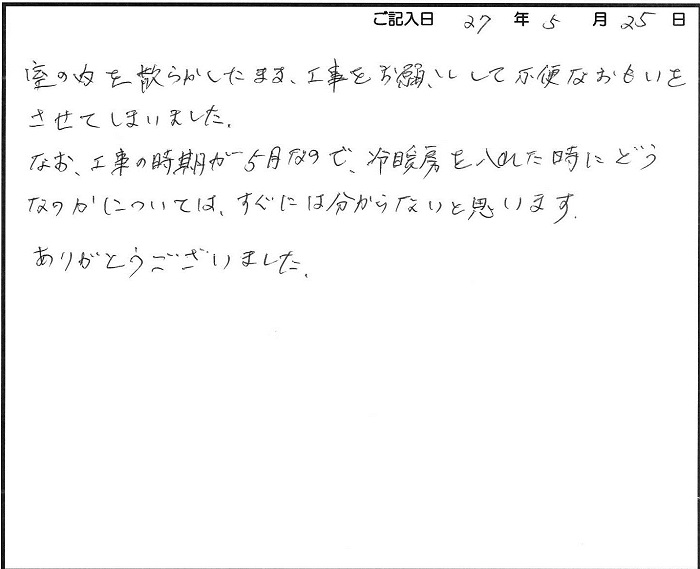 ご記入日 27 年 5 月 25 日
室の内を散らかしたまま、工事をお願いして不便なおもいを
させてしまいました。
なお、工事の時期が5月なので、冷暖房を入れた時にどう
なのかについては、すぐには分からないと思います。
ありがとうございました。